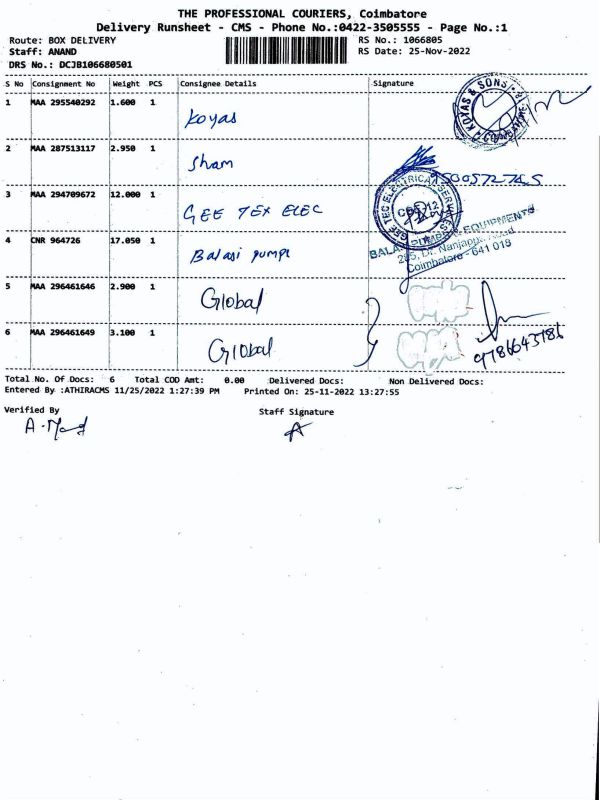 THE PROFESSIONAL COURIERS, Coimbatore
Delivery Runsheet - CMS - Phone No.:0422-3505555 - Page No.:1
Route: BOX DELIVERY RS No.: 1066805
Staff: ANAND RS Date: 25-Nov-2022
DRS No.: DCJB106680501
S No Consignment No Weight PCS Consignee Details Signature
1 MAA 295540292 1.600 1 Koyas
KOYAS & SONS
2 MAA 287513117 2.950 1 Sham
3 MAA 294709672 12.000 1 GEE TEX ELEC
GEE TEC ELECTRICAL SERVICES
4 CNR 964726 17.050 1 Balaji pumps
BALAJI PUMPS & EQUIPMENTS
295, Dr. Nanjappa Road
Coimbatore - 641 018
5 MAA 296461646 2.900 1 Global
6 MAA 296461649 3.100 1 Global
9786643786
Total No. Of Docs: 6 Total COD Amt: 0.00 Delivered Docs: Non Delivered Docs:
Entered By :ATHIRACMS 11/25/2022 1:27:39 PM Printed On: 25-11-2022 13:27:55
Verified By Staff Signature